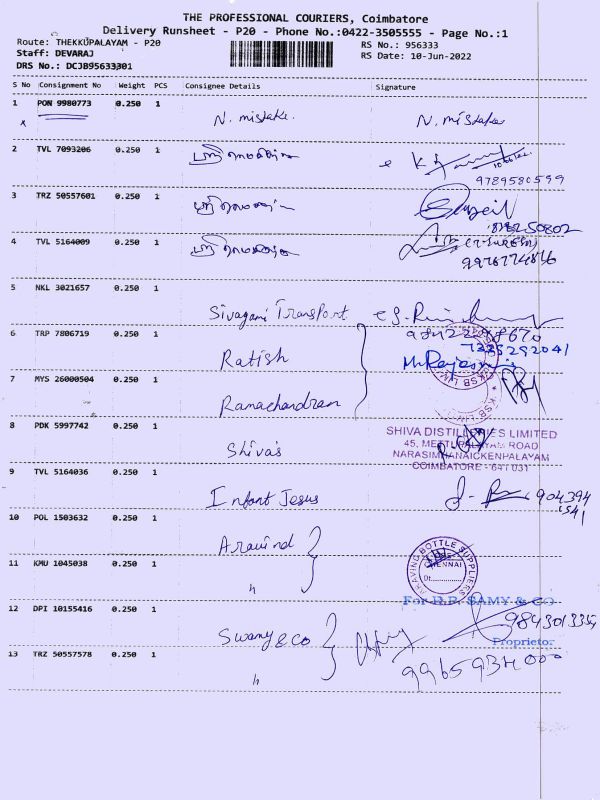 THE PROFESSIONAL COURIERS, Coimbatore
Delivery Runsheet - P20 - Phone No.:0422-3505555 - Page No.:1
Route: THEKKUPALAYAM - P20
RS No.: 956333
Staff: DEVARAJ
RS Date: 10-Jun-2022
DRS No.: DCJB95633301
S No Consignment No Weight PCS Consignee Details Signature
1 PON 9980773 0.250 1
x N. mistake. N. mistake
2 TVL 7093206 0.250 1
9789580599
3 TRZ 50557601 0.250 1
4 TVL 5164009 0.250 1
5 NKL 3021657 0.250 1
Sivagami Transport
6 TRP 7806719 0.250 1
7225292041
Ratish
7 MYS 26000504 0.250 1
Ramachandran
8 PDK 5997742 0.250 1
SHIVA DISTILLERIES LIMITED
45, METTUPALAYAM ROAD
Shiva's
NARASIMHANAICKENPALAYAM
COIMBATORE - 641 031
9 TVL 5164036 0.250 1
Infant Jesus
904394
1541
10 POL 1503632 0.250 1
Aravind
CHENNAI
Dt.
11 KMU 1045038 0.250 1
"
SAMY & CO
12 DPI 10155416 0.250 1
Swamy & Co
Proprietor
13 TRZ 50557578 0.250 1
"
9965934000